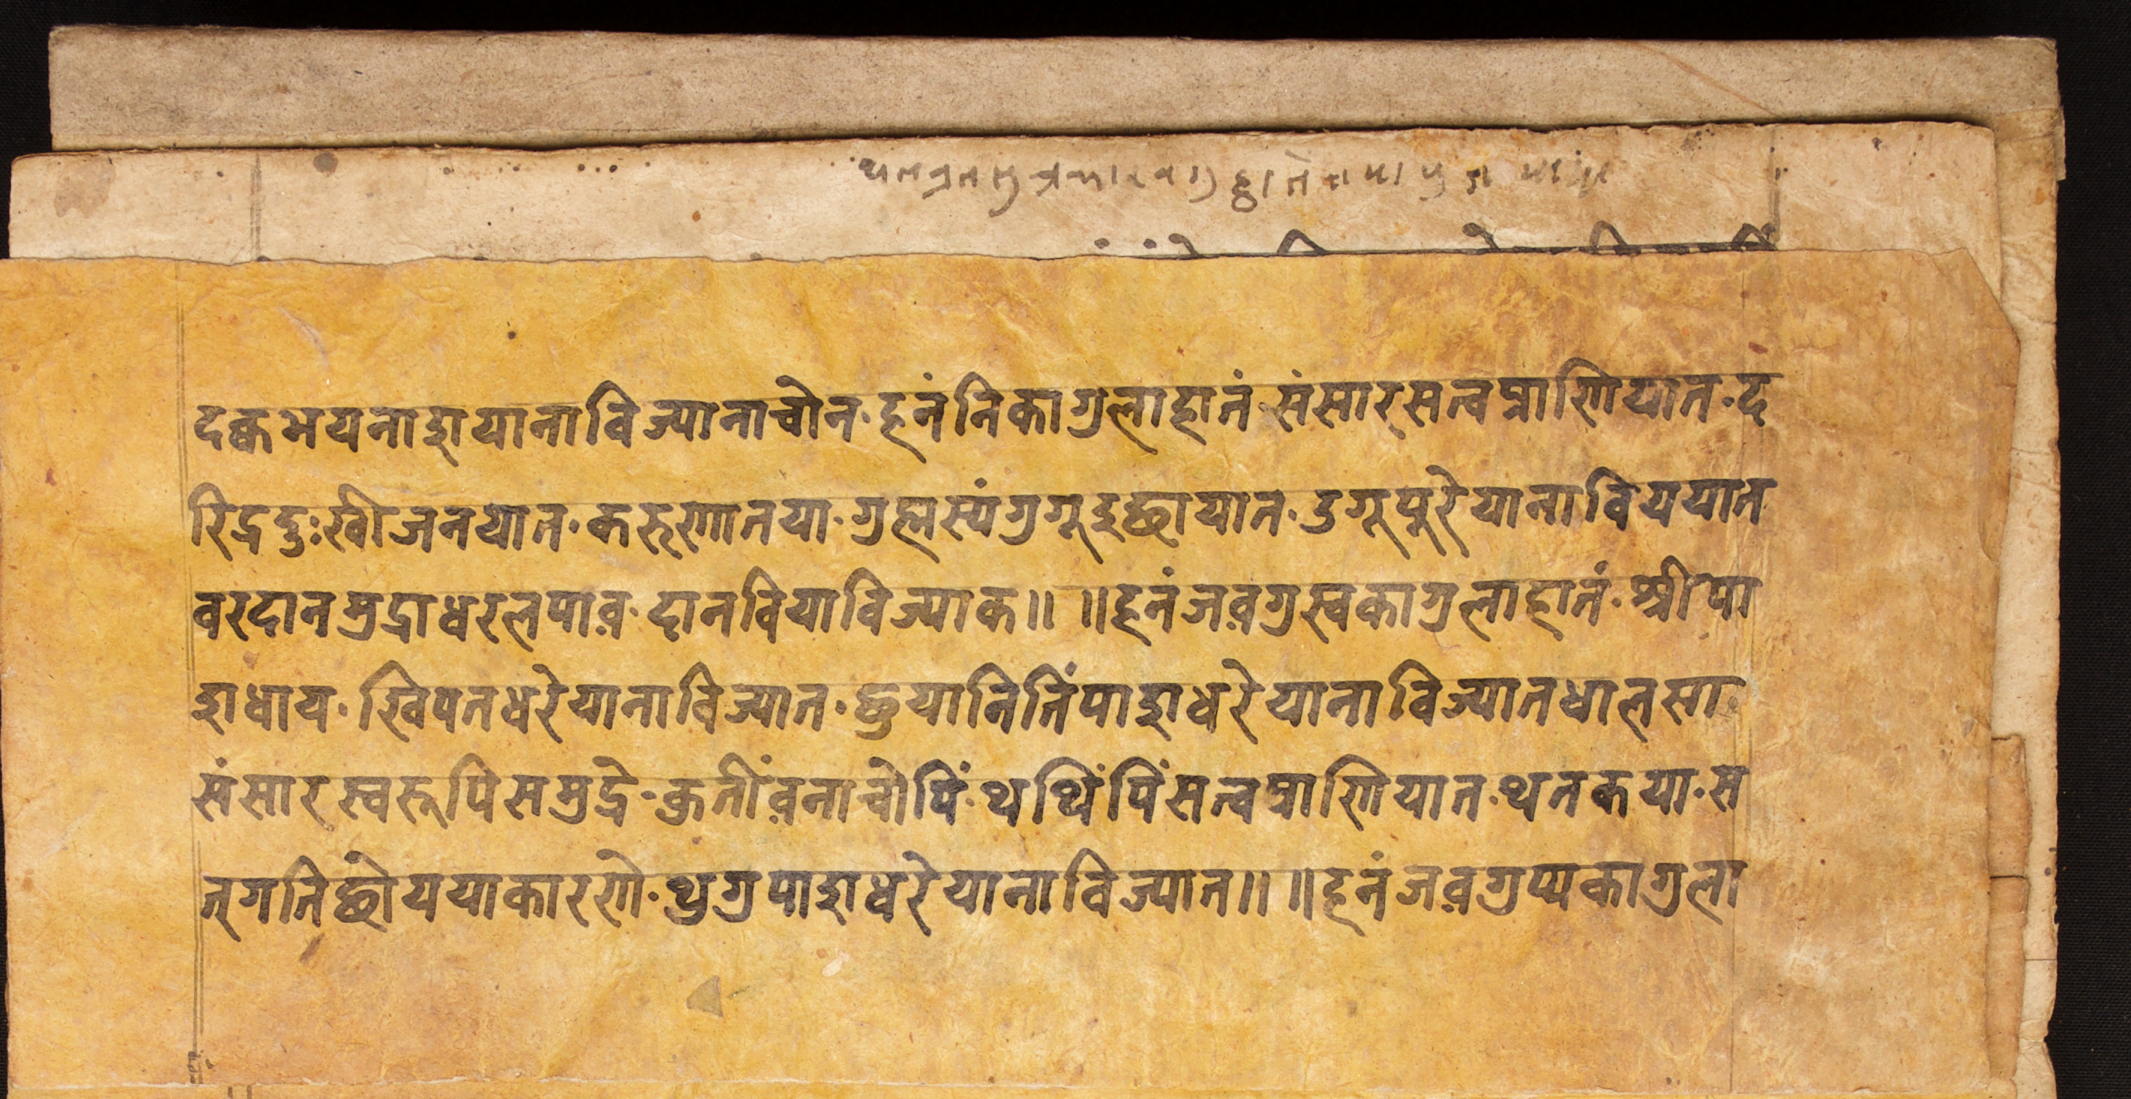 दक्वभयनाङायानाविज्यानाचोन॰हनंनिकागुलाहानं॰संसारसत्वप्राणियात॰द
रिद्रदुःखीजनयात॰करुणातया॰गुह्मस्यंगुगूइछायात॰उगूपुरेयानाविययात
वरदानमुद्राधरलपाव़॰दानवियाविज्याक॥ ॥हनंजव़गुस्वकागुलाहानं॰श्रीपा
ङाधाय॰खिपतधरेयानाविज्यात॰छुयानितिंपाङाधरेयानाविज्यातधालसा
संसारस्वरूपिसमुद्रे॰कुतींव़नाचोपिं॰थथिंपिंसत्वप्राणियात॰थतकया॰स
त्गतिछोययाकारणे॰थुगुपाङाधरेयानाविज्यात॥ ॥हनंजव़गुप्यकागुला